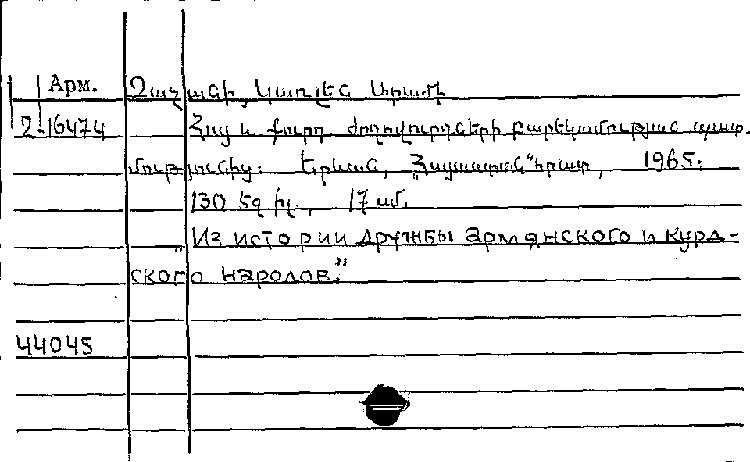 Арм. Չաչանի, Կառլեն Արամի
2-16474 Հայ և քուրդ ժողովուրդների բարեկամության պատ-
մությունից: Երևան, „Հայաստան" հրատ, 1965.
130 էջ իլ., 17 սմ.
„Из истории дружбы армянского и курд-
ского народов."
44045